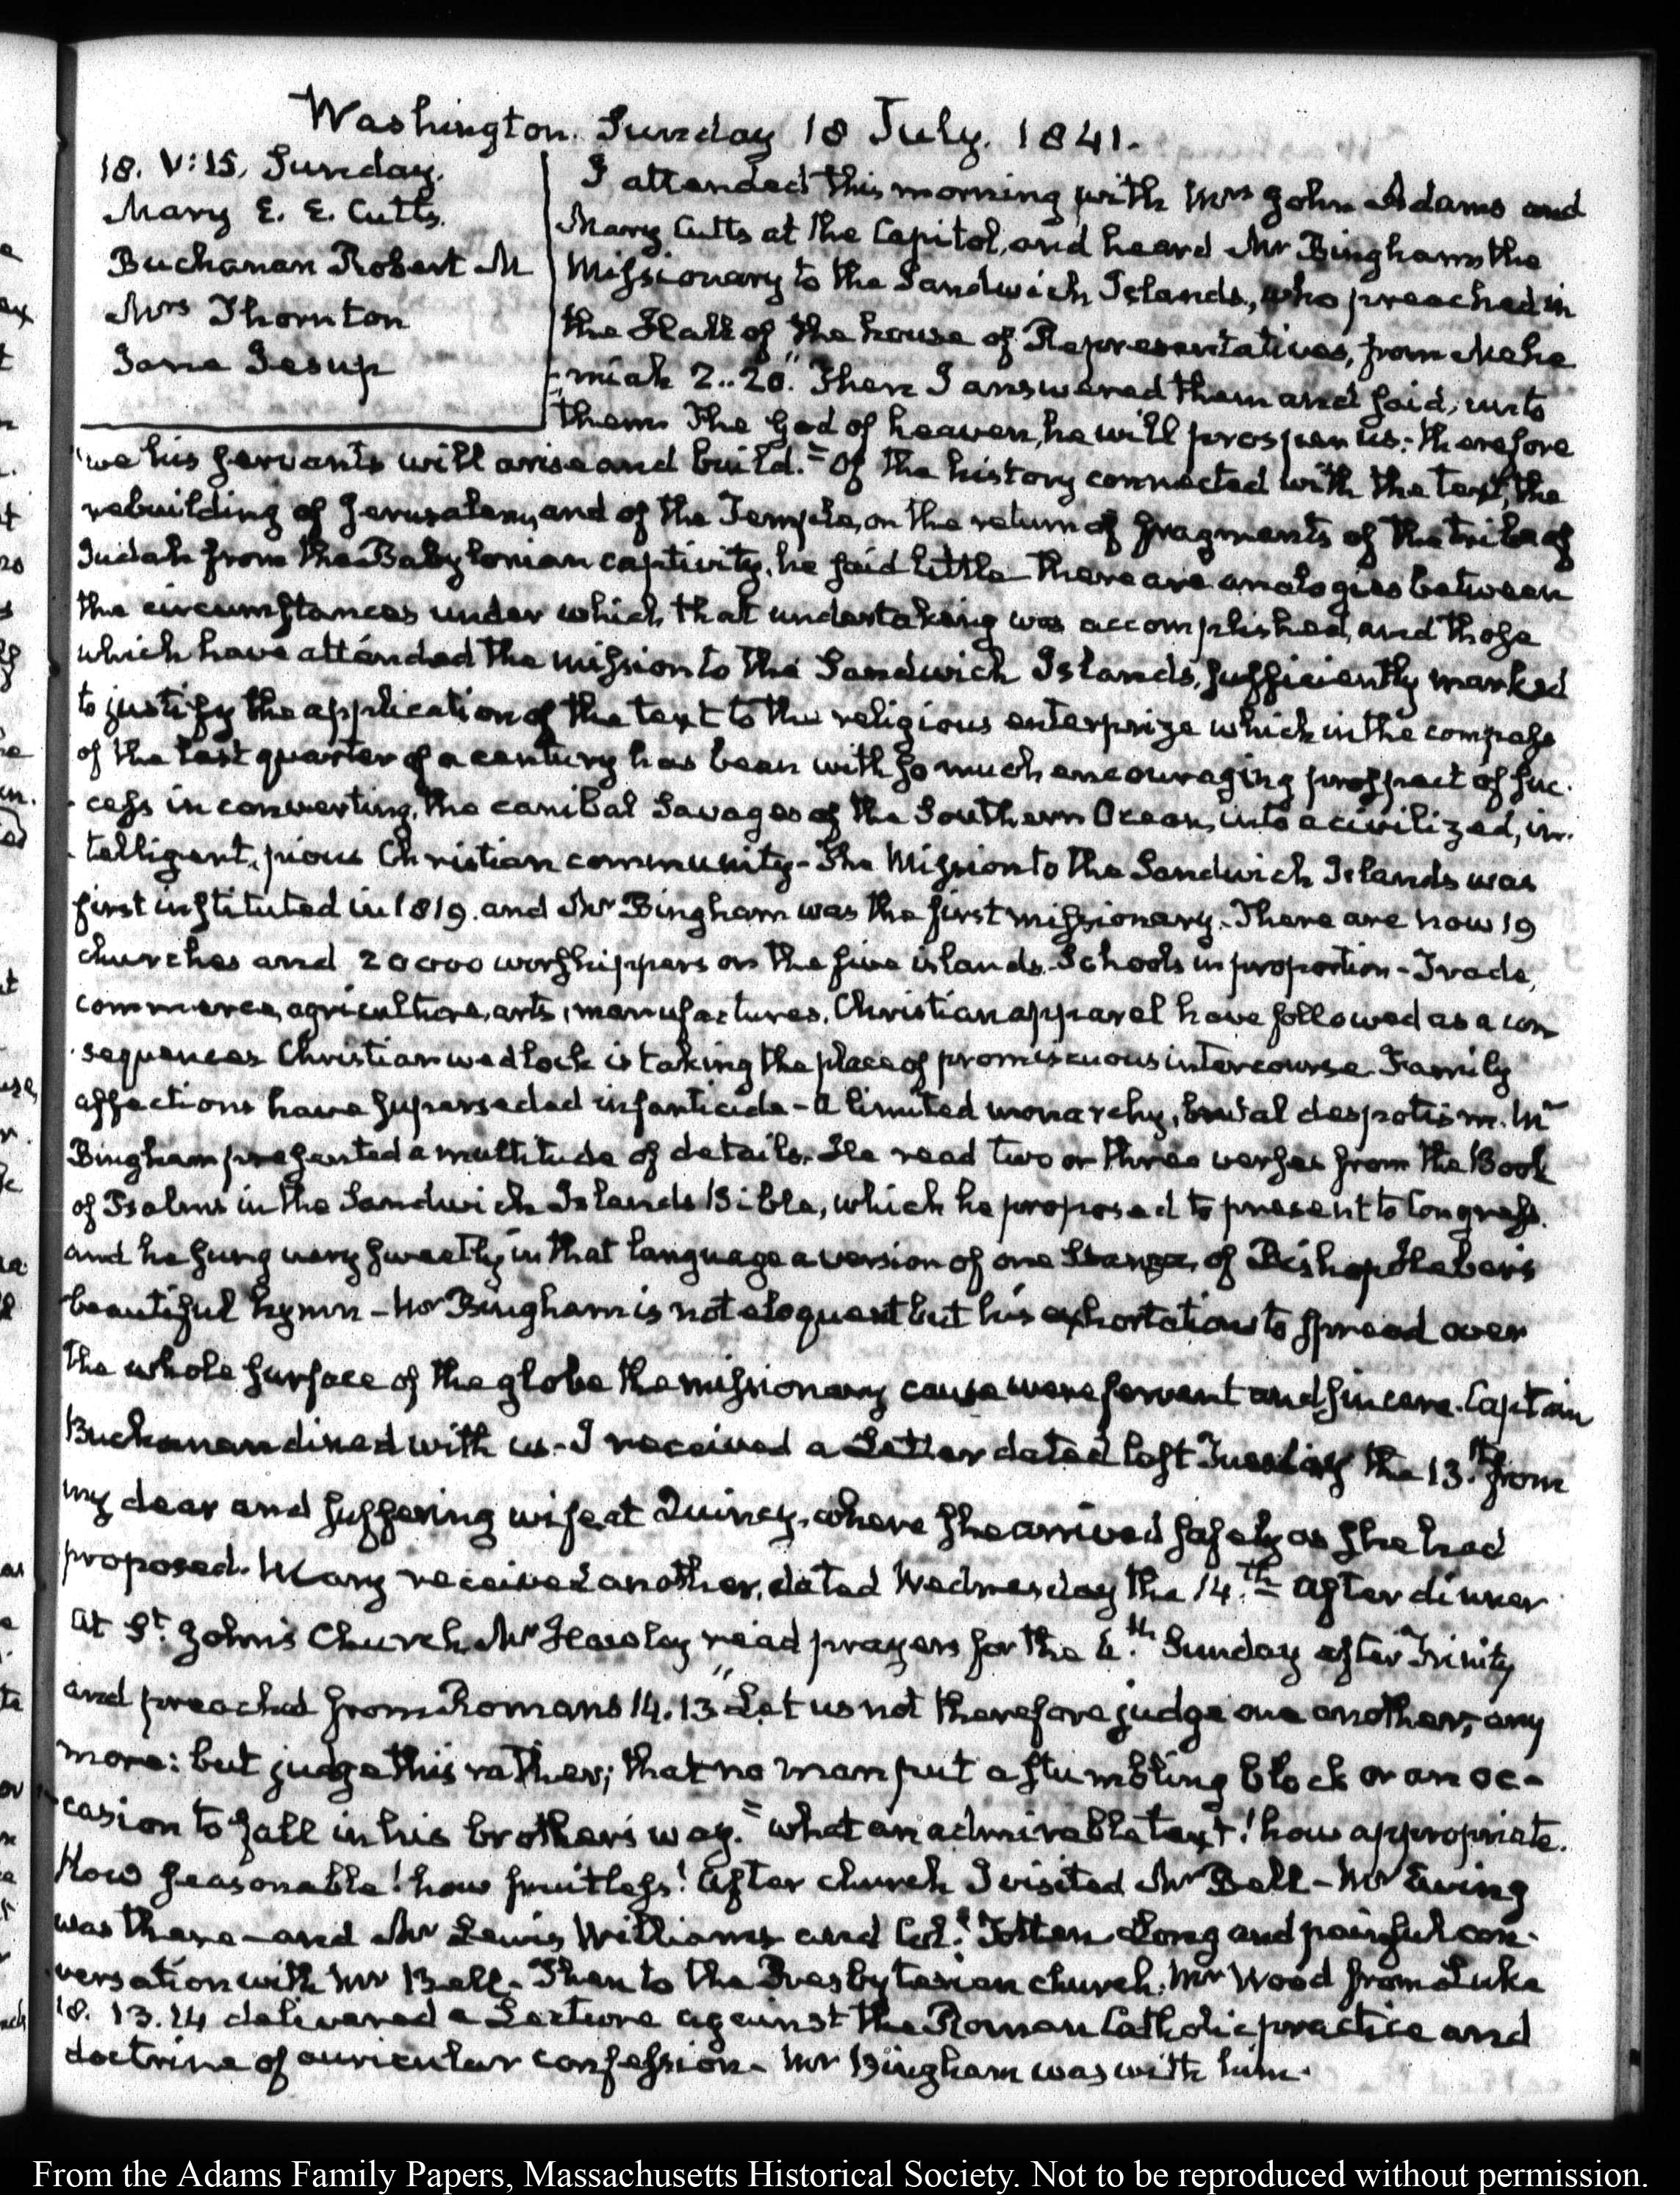 Washington. Sunday 18 July. 1841.
18. V:15. Sunday.
Mary E. E. Cutts.
Buchanan Robert M
Mrs Thornton
Jane Jesup
I attended this morning with Mrs John Adams and
Mary Cutts at the Capitol, and heard Mr Bingham the
Missionary to the Sandwich Islands, who preached in
the Hall of the house of Representatives, from Nehe
-miah 2..20. "Then I answered them and said, unto
"them The God of heaven, he will prosper us: therefore
"we his servants will arise and build." Of the history connected with the text, the
rebuilding of Jerusalem, and of the Temple, on the return of fragments of the tribe of
Judah from the Babylonian captivity, he said little There are analogies between
the circumstances under which that undertaking was accomplished, and those
which have attended the mission to the Sandwich Islands, sufficiently marked
to justify the application of the text to the religious enterprize which in the compass
of the last quarter of a century has been with so much encouraging prospect of suc-
cess in converting, the canibal Savages of the Southern Ocean, into a civilized, in-
-telligent, pious Christian community- The Mission to the Sandwich Islands was
first instituted in 1819. and Mr Bingham was the first missionary. There are now 19
churches and 20000 worshippers on the five islands. Schools in proportion- Trade,
commerce, agriculture, arts, manufactures, Christian apparel have followed as a con
-sequences Christian wedlock is taking the place of promiscuous intercourse. Family
affections have superseded infanticide- a limited monarchy, brutal despotism. Mr
Bingham presented a multitude of details. He read two or three verses from the Book
of Psalms in the Sandwich Islands Bible, which he proposed to present to Congress.
and he sung very sweetly in that language a version of one Stanza, of Bishop Heber's
beautiful hymn- Mr Bingham is not eloquent but his exhortations to spread over
the whole surface of the globe the missionary cause were fervent and sincere. Captain
Buchanan dined with us- I received a Letter dated last Tuesday the 13.th from
my dear and suffering wife at Quincy, where she arrived safely as she had
proposed. Mary received another, dated Wednesday the 14.th After dinner
at St. John's Church Mr Hawley read prayers for the 6.th Sunday after Trinity
and preached from Romans 14.13 "Let us not therefore judge one another, any
more: but judge this rather; that no man put a stumbling block or an oc-
casion to fall in his brother's way." What an admirable text! how appropriate.
How seasonable! how fruitless! After church I visited Mr Bell- Mr Ewing
was there- and Mr Lewis Williams and Col. Totten Long and painful con-
versation with Mr Bell- Then to the Presbyterian church. Mr Wood from Luke
18. 13.14 delivered a Lecture against the Roman Catholic practice and
doctrine of auricular confession- Mr Bingham was with him.
From the Adams Family Papers, Massachusetts Historical Society. Not to be reproduced without permission.